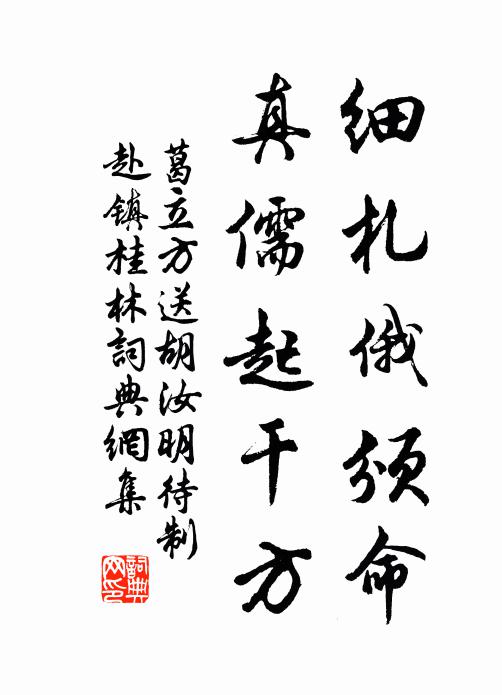 細札俄頒命
真儒起千方
葛立方送胡汝明待制
赴鎮桂林詞典網集
詞典
网印